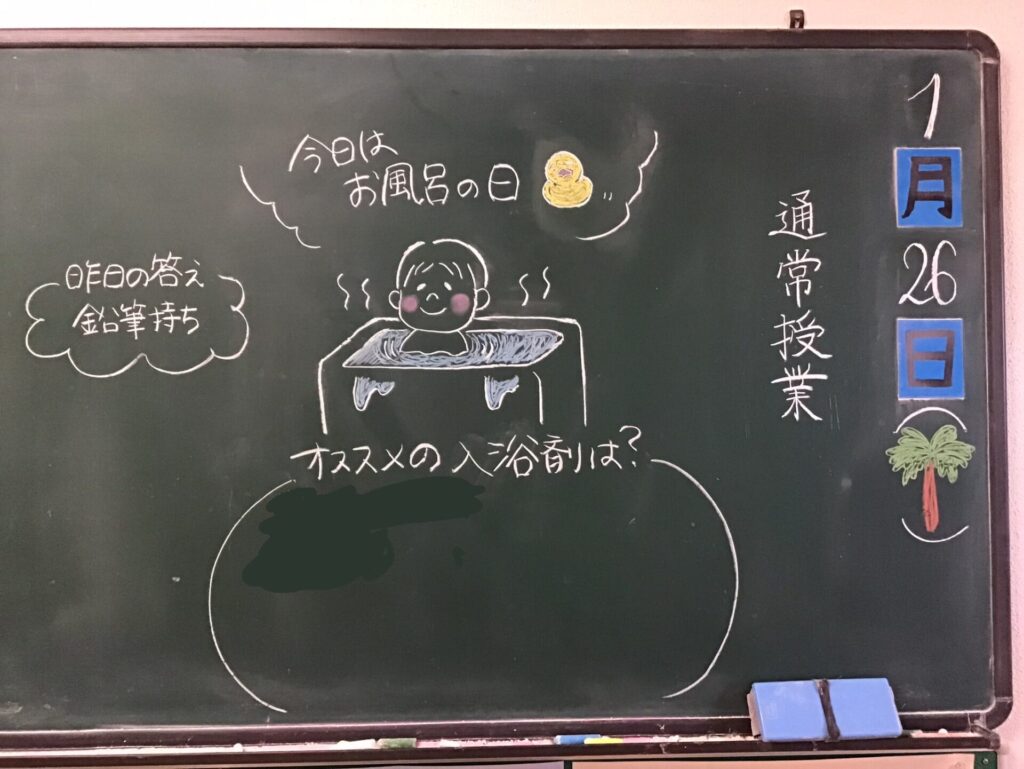 1
月
26
日
通常授業
今日は
お風呂の日
昨日の答え
鉛筆持ち
オススメの入浴剤は?